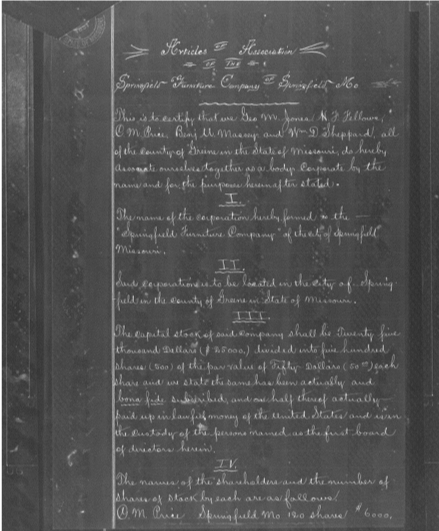 Articles of Association
OF THE
Springfield Furniture Company of Springfield, Mo
This is to certify that we Geo M. Jones H. F. Fellows,
O M. Price, Benj U Massey and Wm D. Sheppard, all
of the County of Greene in the State of Missouri, do hereby
associate ourselves together as a body Corporate by the
name and for the purposes hereinafter stated.
I.
The name of the corporation hereby formed is the —
"Springfield Furniture Company" of the city of Springfield
Missouri.
II.
Said corporation is to be located in the city of Spring-
field in the County of Greene in State of Missouri.
III.
The capital stock of said Company shall be Twenty five
thousand Dollars ($25000.) divided into five hundred
shares (500) of the par value of Fifty Dollars (50.00) each
share and we state the same has been actually and
bona fide subscribed, and one half thereof actually
paid up in lawful money of the United States and is in
the custody of the persons named as the first board
of directors herein.
IV.
The names of the shareholders and the number of
shares of stock by each are as follows:
O. M. Price Springfield Mo 120 shares $6000.